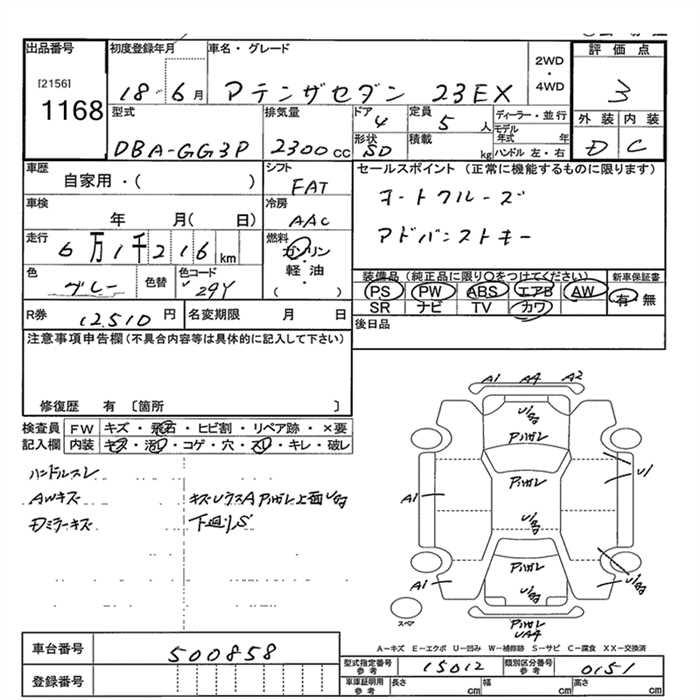 出品番号 初度登録年月 車名・グレード 2WD・4WD 評価点
[2156] 1168 18-6月 アテンザセダン 23EX 3
型式 排気量 ドア 定員 ディーラー・並行 外装 内装
DBA-GG3P 2300cc 4 5人 モデル年式 年 D C
形状 積載 kg ハンドル 左・右
SD
車歴 シフト セールスポイント (正常に機能するものに限ります)
自家用・( ) FAT オートクルーズ
車検 冷房
年 月( 日) AAC アドバンストキー
走行 燃料
6万1千216km ガソリン・軽油・( )
色 色替 色コード 装備品 (純正品に限り○をつけてください) 新車保証書
グレー 29Y PS PW ABS エアB AW 有・無
SR ナビ TV カワ
R券 12510円 名変期限 月 日 後日品
注意事項申告欄(不具合内容等は具体的に記入して下さい)
修復歴 有〔箇所 〕
検査員 FW キズ・飛石・ヒビ割・リペア跡・×要
記入欄 内装 キズ・汚レ・コゲ・穴・スレ・キレ・破レ
ハンドルスレ
AWキズ
Dミラーキズ
下廻りS
A1 A4 A2
アハガレ
アハガレ
U1
A1
アハガレ
A1
アハガレ
UA4
スペア
A-キズ E-エクボ U-凹み W-補修跡 S-サビ C-腐食 XX-交換済
車台番号 500858
型式指定番号 参考 15012 類別区分番号 参考 0151
登録番号
車庫証明用 参考 長さ cm 幅 cm 高さ cm